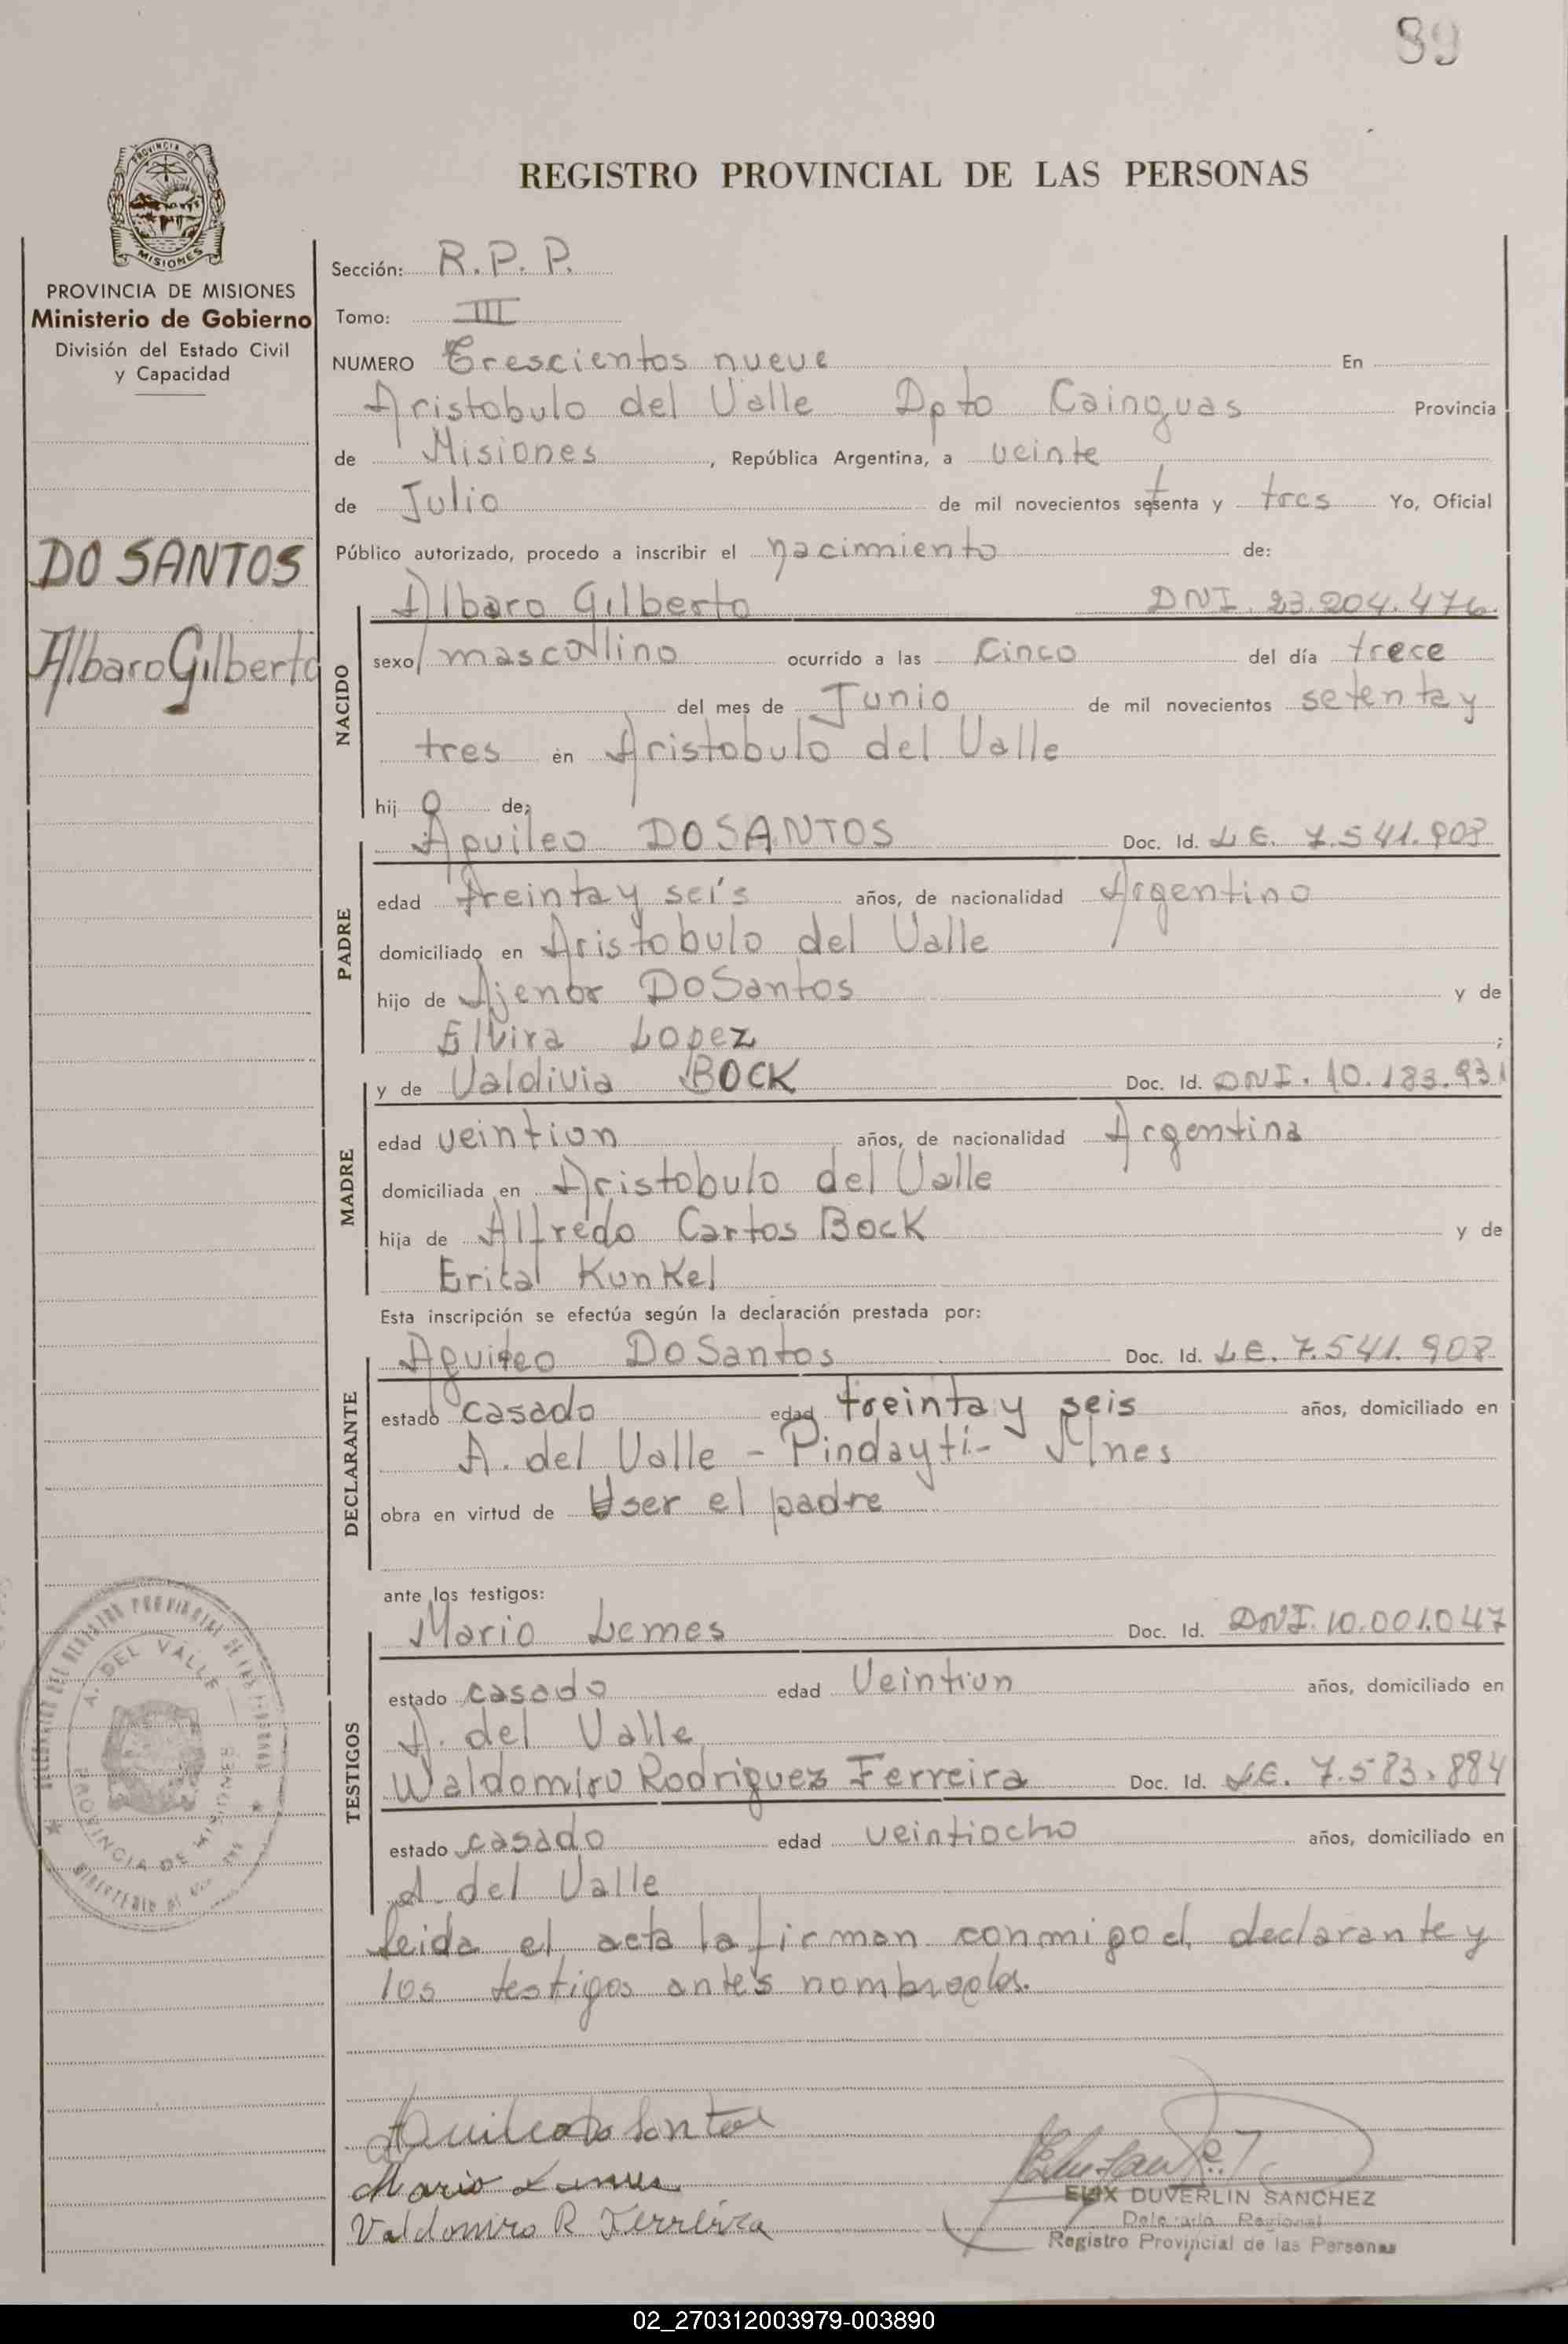 89
REGISTRO PROVINCIAL DE LAS PERSONAS
PROVINCIA DE MISIONES
Ministerio de Gobierno
División del Estado Civil
y Capacidad
DO SANTOS
Albaro Gilberto
Sección: R.P.P.
Tomo: III
NUMERO Trescientos nueve En
Aristobulo del Valle Dpto Cainguas Provincia
de Misiones, República Argentina, a veinte
de Julio de mil novecientos setenta y tres Yo, Oficial
Público autorizado, procedo a inscribir el nacimiento de:
NACIDO
Albaro Gilberto DNI. 23.204.476.
sexo masculino ocurrido a las Cinco del día trece
del mes de Junio de mil novecientos setenta y
tres en Aristobulo del Valle
hij o de:
PADRE
Aquileo DOSANTOS Doc. Id. L.E. 7.541.908
edad treinta y seis años, de nacionalidad Argentino
domiciliado en Aristobulo del Valle
hijo de Ajenor DoSantos y de
Elvira Lopez ;
MADRE
y de Valdivia BOCK Doc. Id. DNI. 10.183.931
edad veintiun años, de nacionalidad Argentina
domiciliada en Aristobulo del Valle
hija de Alfredo Carlos Bock y de
Erica Kunkel
Esta inscripción se efectúa según la declaración prestada por:
DECLARANTE
Aquileo DoSantos Doc. Id. L.E. 7.541.908
estado casado edad treinta y seis años, domiciliado en
A. del Valle - Pindayti- Mnes
obra en virtud de ser el padre
ante los testigos:
TESTIGOS
Mario Lemes Doc. Id. DNI. 10.001.047
estado casado edad Veintiun años, domiciliado en
A. del Valle
Waldomiro Rodriguez Ferreira Doc. Id. L.E. 7.583.884
estado casado edad veintiocho años, domiciliado en
A. del Valle
leida el acta la firman conmigo el declarante y
los testigos antes nombrados.
A. DEL VALLE
PROVINCIA DE MISIONES
Aquileo Do Santos
Mario Lemes
Valdomiro R Ferreira
ELIX DUVERLIN SANCHEZ
Delegado Regional
Registro Provincial de las Personas
02_270312003979-003890